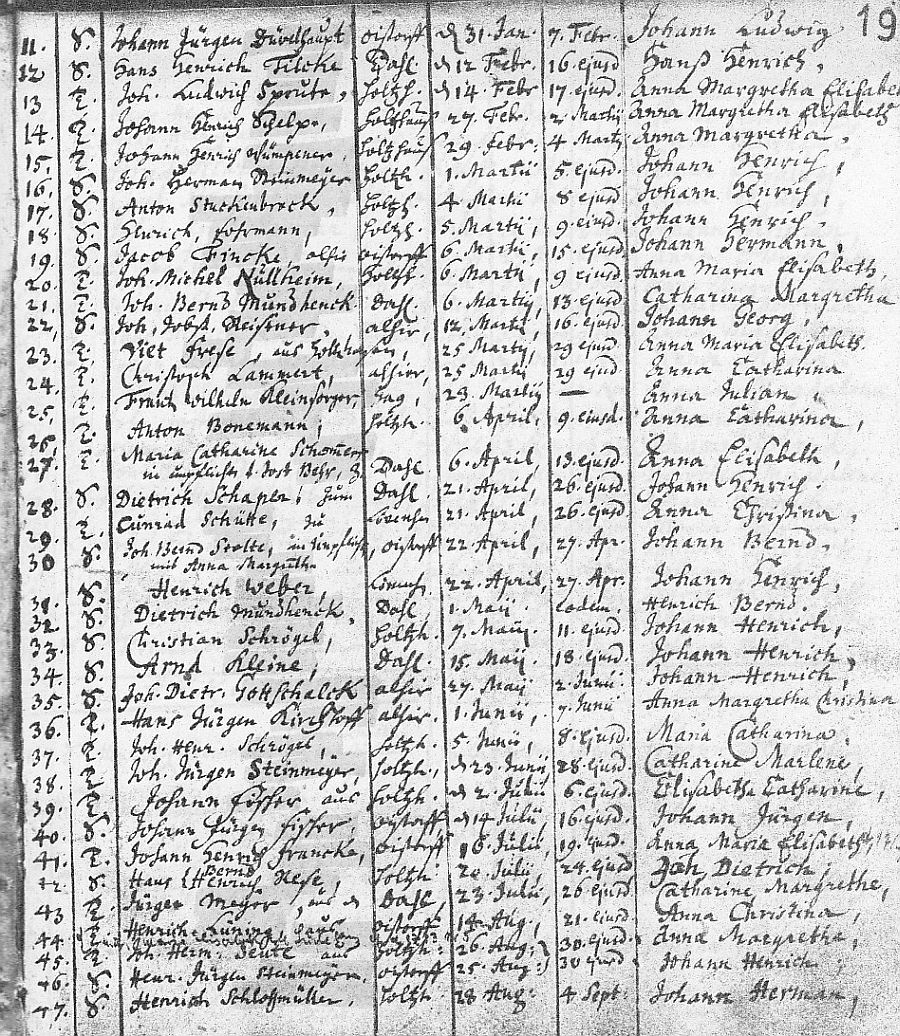 19
11. S. Johann Jürgen Düvelhaupt oistorff d 31. Jan. 7. Febr. Johann Ludwig
12 S. Hans Henrich Filcke Dahl d 12 Febr. 16. ejusd Hanß Henrich,
13 T. Joh. Ludwich Sprute, holtzh. d 14. Febr 17. ejusd. Anna Margretha Elisabet
14. T. Johann Henrich Schelpe, holtzhauß 27. Febr. 2. Martij Anna Margretha Elisabeth
15. T. Johann Henrich holtzhauß 29. Febr: 4 Martj Anna Margretha,
16. S. Joh. Herman holtzh. 1. Martii 5. ejusd. Johann Henrich,
17. S. Anton Stuckenbrock, holtzh. 4. Martii 8 ejusd. Johann Henrich,
18 S. Henrich, Fohrmann, holtzh. 5. Martij, 9. ejusd. Johann Henrich.
19. S. Jacob Fincke, oistorff 6. Martij, 15. ejusd Johann Hermann,
20. T. Joh. Michel Nüllheim, holtzh. 6. Martij, 9 ejusd. Anna Maria Elisabeth,
21. T. Joh. Bernd Mundhenck Dahl. 6. Martij, 13. ejusd. Catharina Margretha
22, S. Joh. Jobst. Reissner, alhir, 12. Martij, 16. ejusd. Johann Georg,
23. T. Viet Frese, aus 25 Martij, 29 ejusd. Anna Maria Elisabeth.
24. T. Christoph Lammert, alhier, 25 Martij 29 ejusd Anna Catharina
25, T. Wilhelm Kleinsorger, hag, 28. Martij — Anna Julian,
26, T. Anton Bonemann, holtzh. 6. April, 9. ejusd. Anna Catharina,
27. T. Maria Catharine Dahl. 6. April, 13. ejusd. Anna Elisabeth,
in unpflicht
28. S. Dietrich Schaper; zum Dahl. 21. April, 26. ejusd. Johann Henrich.
29. T. Cunrad Schütte, zu 21. April, 26. ejusd. Anna Christina,
30 S. Joh. Bernd Stolte, in Unpflicht, oistorff 22. April, 27. Apr. Johann Bernd,
mit Anna Margreth
31. S. Henrich Weber, 22. April, 27. Apr. Johann Henrich,
32 S. Dietrich Mundhenck, Dahl. 1. Maij. eodem. Henrich Bernd.
33. S. Christian Schrögel, holtzh. 7. Maij. 11. ejusd. Johann Henrich,
34. S. Arnd Kleine, Dahl. 15. Maij. 18. ejusd. Johann Henrich,
35. S. Joh. Dietr. Gottschalck alhir 27. Maij 2. Junii Johann Henrich,
36. T. Hans Jürgen Kirchhoff alhir. 1. Junii, 7. Junii Anna Margretha Christina
37. T. Joh. Henr. Schrögel, holtzh. 5. Junii, 8. ejusd. Maria Catharina,
38. T. Joh. Jürgen Steinmeyer, holtzh., d 23. Junij 28. ejusd. Catharine Marlene,
39. T. Johann aus holtzh. d 2. Julii 6. ejusd. Elisabeth Catharine,
40. S. Johann Jürgen Fischer, oystorff d 14 Julii, 16. ejusd. Johann Jürgen,
41. T. Johann Henrich Francke, oistorff. 16. Julii, 19. ejusd. Anna Maria Elisabeth,
42. S. Hans Bernd Henrich Hese, holtzh. 20. Julii, 24. ejusd Joh, Dietrich,
43 T. Jürgen Meyer, aus d Dahl, 23. Julii, 26 ejusd Catharine Margrethe,
44. T. Henrich oistorff. 14 Aug, 21. ejusd. Anna Christina,
45. T. Joh. Herm: aus holtzh. 26. Aug, 30. ejusd Anna Margretha,
46. S. Henr. Jürgen Steinmeyer oistorff 25. Aug: 30 ejusd Johann Henrich
47. S. Henrich Schloßmüller, holtzh 28 Aug: 4 Sept: Johann Herman,